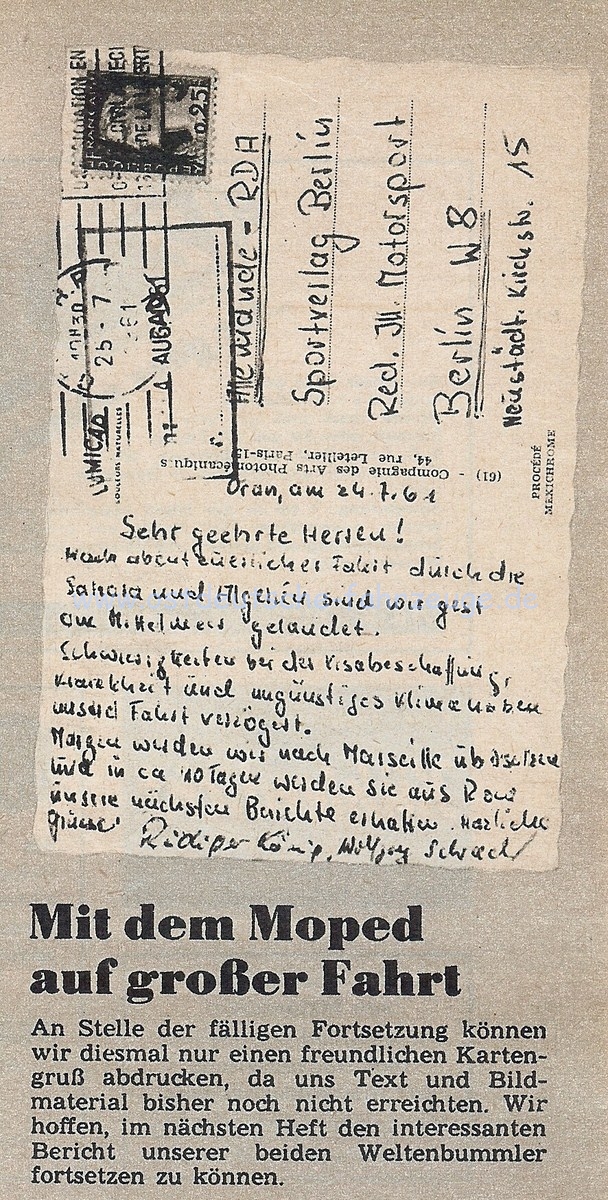 USATION EN
DE LA
0,25F
10H30
25-7
LUMICAP
COULEURS NATURELLES
Allemande - RDA
Sportverlag Berlin
Red. Ill. Motorsport
Berlin W 8
Neustädt. Kirchstr. 15
(61) - Compagnie des Arts Photomécaniques
44, rue Letellier, Paris-15
PROCÉDÉ
MEXICHROME
Oran, am 24.7.61
Sehr geehrte Herren!
Nach abenteuerlicher Fahrt durch die
Sahara und Algerien sind wir gest
am Mittelmeer gelandet.
Schwierigkeiten bei der Visabeschaffung,
Krankheit und ungünstiges Klima haben
unsere Fahrt verzögert.
Morgen werden wir nach Marseille übersetzen
und in ca 10 Tagen werden Sie aus Rom
unsere nächsten Berichte erhalten. Herzliche
Grüsse
Rüdiger König, Wolfgang Schrader
Mit dem Moped
auf großer Fahrt
An Stelle der fälligen Fortsetzung können
wir diesmal nur einen freundlichen Karten-
gruß abdrucken, da uns Text und Bild-
material bisher noch nicht erreichten. Wir
hoffen, im nächsten Heft den interessanten
Bericht unserer beiden Weltenbummler
fortsetzen zu können.